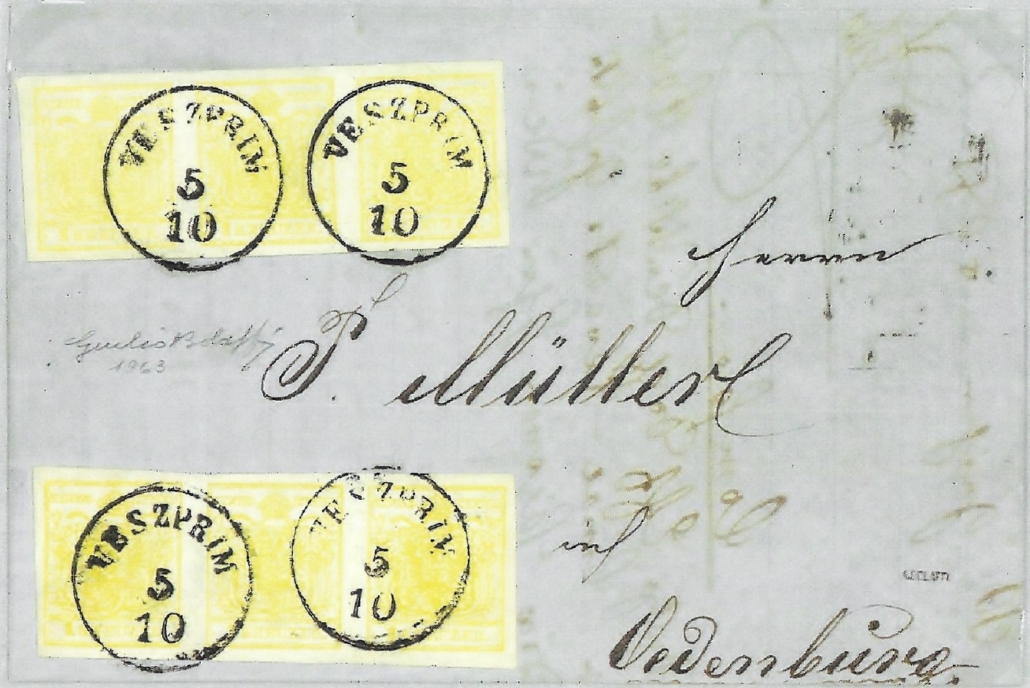 VESZPRIM
5
10
VESZPRIM
5
10
Herrn
1963
P. Müller
VESZPRIM
5
10
VESZPRIM
5
10
in
Oedenburg.